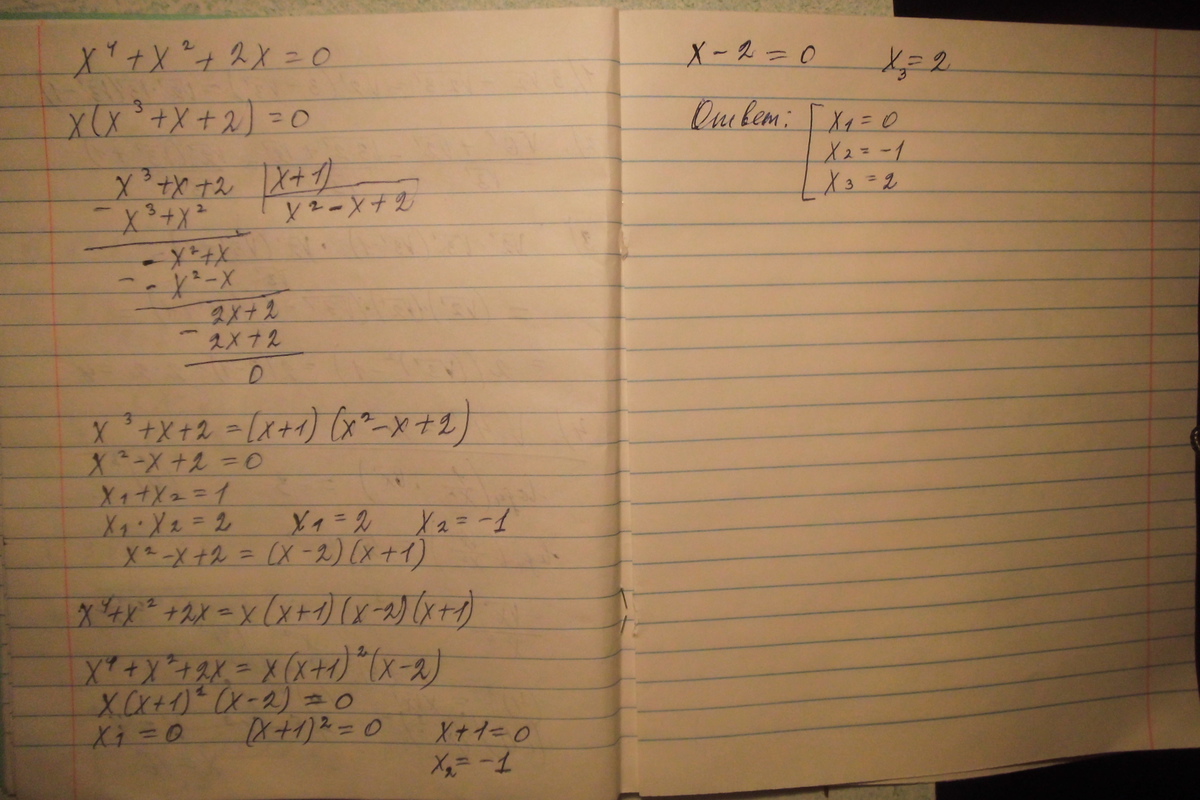 x⁴ + x² + 2x = 0
x(x³ + x + 2) = 0
x³ + x + 2 | x + 1)
− x³ + x² | x² − x + 2
− x² + x
− − x² − x
2x + 2
− 2x + 2
0
x³ + x + 2 = (x+1) (x² − x + 2)
x² − x + 2 = 0
x₁ + x₂ = 1
x₁ · x₂ = 2 x₁ = 2 x₂ = −1
x² − x + 2 = (x − 2)(x + 1)
x⁴ + x² + 2x = x(x+1)(x−2)(x+1)
x⁴ + x² + 2x = x(x+1)²(x−2)
x(x+1)²(x−2) = 0
x₁ = 0 (x+1)² = 0 x + 1 = 0
x₂ = −1
x − 2 = 0 x₃ = 2
Ответ: [ x₁ = 0
x₂ = −1
x₃ = 2